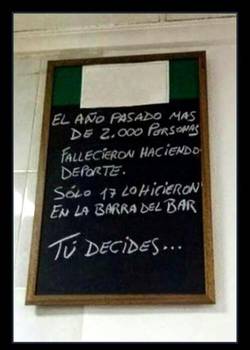 EL AÑO PASADO MAS
DE 2.000 PERSONAS
FALLECIERON HACIENDO
DEPORTE.
SÓLO 17 LO HICIERON
EN LA BARRA DEL BAR
TÚ DECIDES...